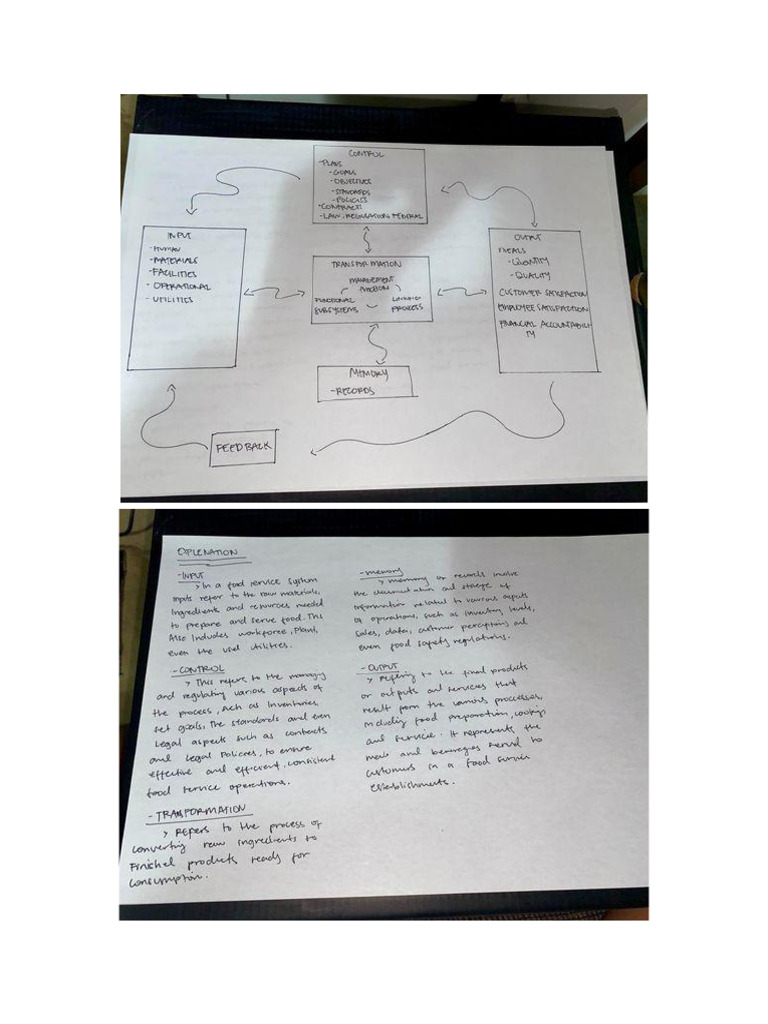 CONTROL
-PLANS
-GOALS
-OBJECTIVES
-STANDARDS
-POLICIES
-CONTRACTS
-LAW, REGULATION FEDERAL
INPUT
-HUMAN
-MATERIALS
-FACILITIES
- OPERATIONAL
- UTILITIES
TRANSFORMATION
MANAGEMENT
FUNCTION
FUNCTIONAL
SUBSYSTEMS
PROCESS
OUTPUT
MEALS
-QUANTITY
-QUALITY
CUSTOMER SATISFACTION
EMPLOYEE SATISFACTION
FINANCIAL ACCOUNTABILI
TY
MEMORY
-RECORDS
FEEDBACK
EXPLENATION
-INPUT
> In a food service system
inputs refer to the raw materials,
Ingredients and resources needed
to prepare and serve food. This
Also Includes workforce, Plant,
even the used utilities.
- CONTROL
> This refers to the managing
and regulating various aspects of
the process, such as Inventories,
set goals, the standards and even
Legal aspects such as contracts
and Legal Policies, to ensure
effective and efficient, consistent
food service operations.
- TRANSFORMATION
> Refers to the process of
converting raw ingredients to
Finished products ready for
consumption.
-memory
> memory or records involve
the documentation and storage of
Information related to various aspects
of operations, such as inventory levels,
Sales, dates, customer perceptions and
even food safety regulations.
- OUTPUT
> refering to the final products
or outputs and services that
result from the various processes,
Including food preparation, cooking
and service. It represents the
meals and beverages served to
customers in a food service
establishments.